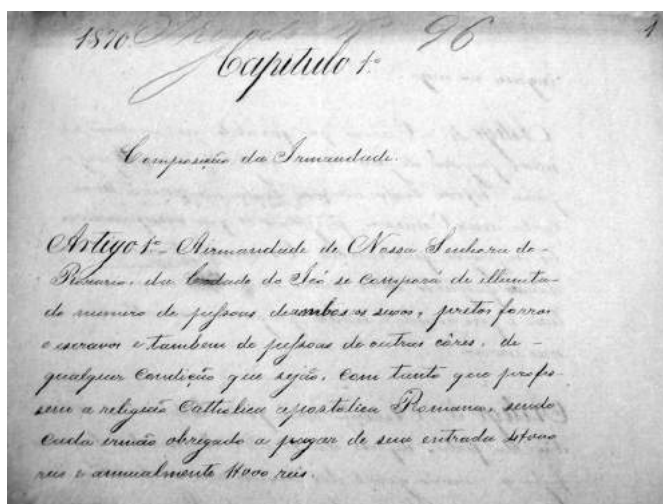 1870 Nº 96
1
Capitulo 1º
Composição da Irmandade.
Artigo 1º- Airmandade de Nossa Senhora do-
Rosario, da Cidade do Icó se comporá de illimita-
do numero de pessoas de ambos os sexos, pretos forros
e escravos e tambem de pessoas de outras côres, de-
qualquer condição que sejão, com tanto que profes-
sem a religião Catholica apostolica Romana, sendo
cada irmão obrigado a pagar de sua entrada 4$000
reis e annualmente 1$000 reis.